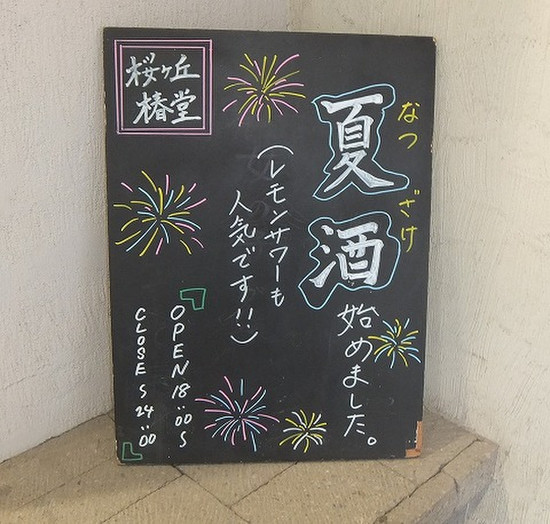 桜ヶ丘
椿堂
なつ ざけ
夏酒
始めました。
(レモンサワーも
人気です!!)
OPEN 18:00 S
CLOSE S 24:00